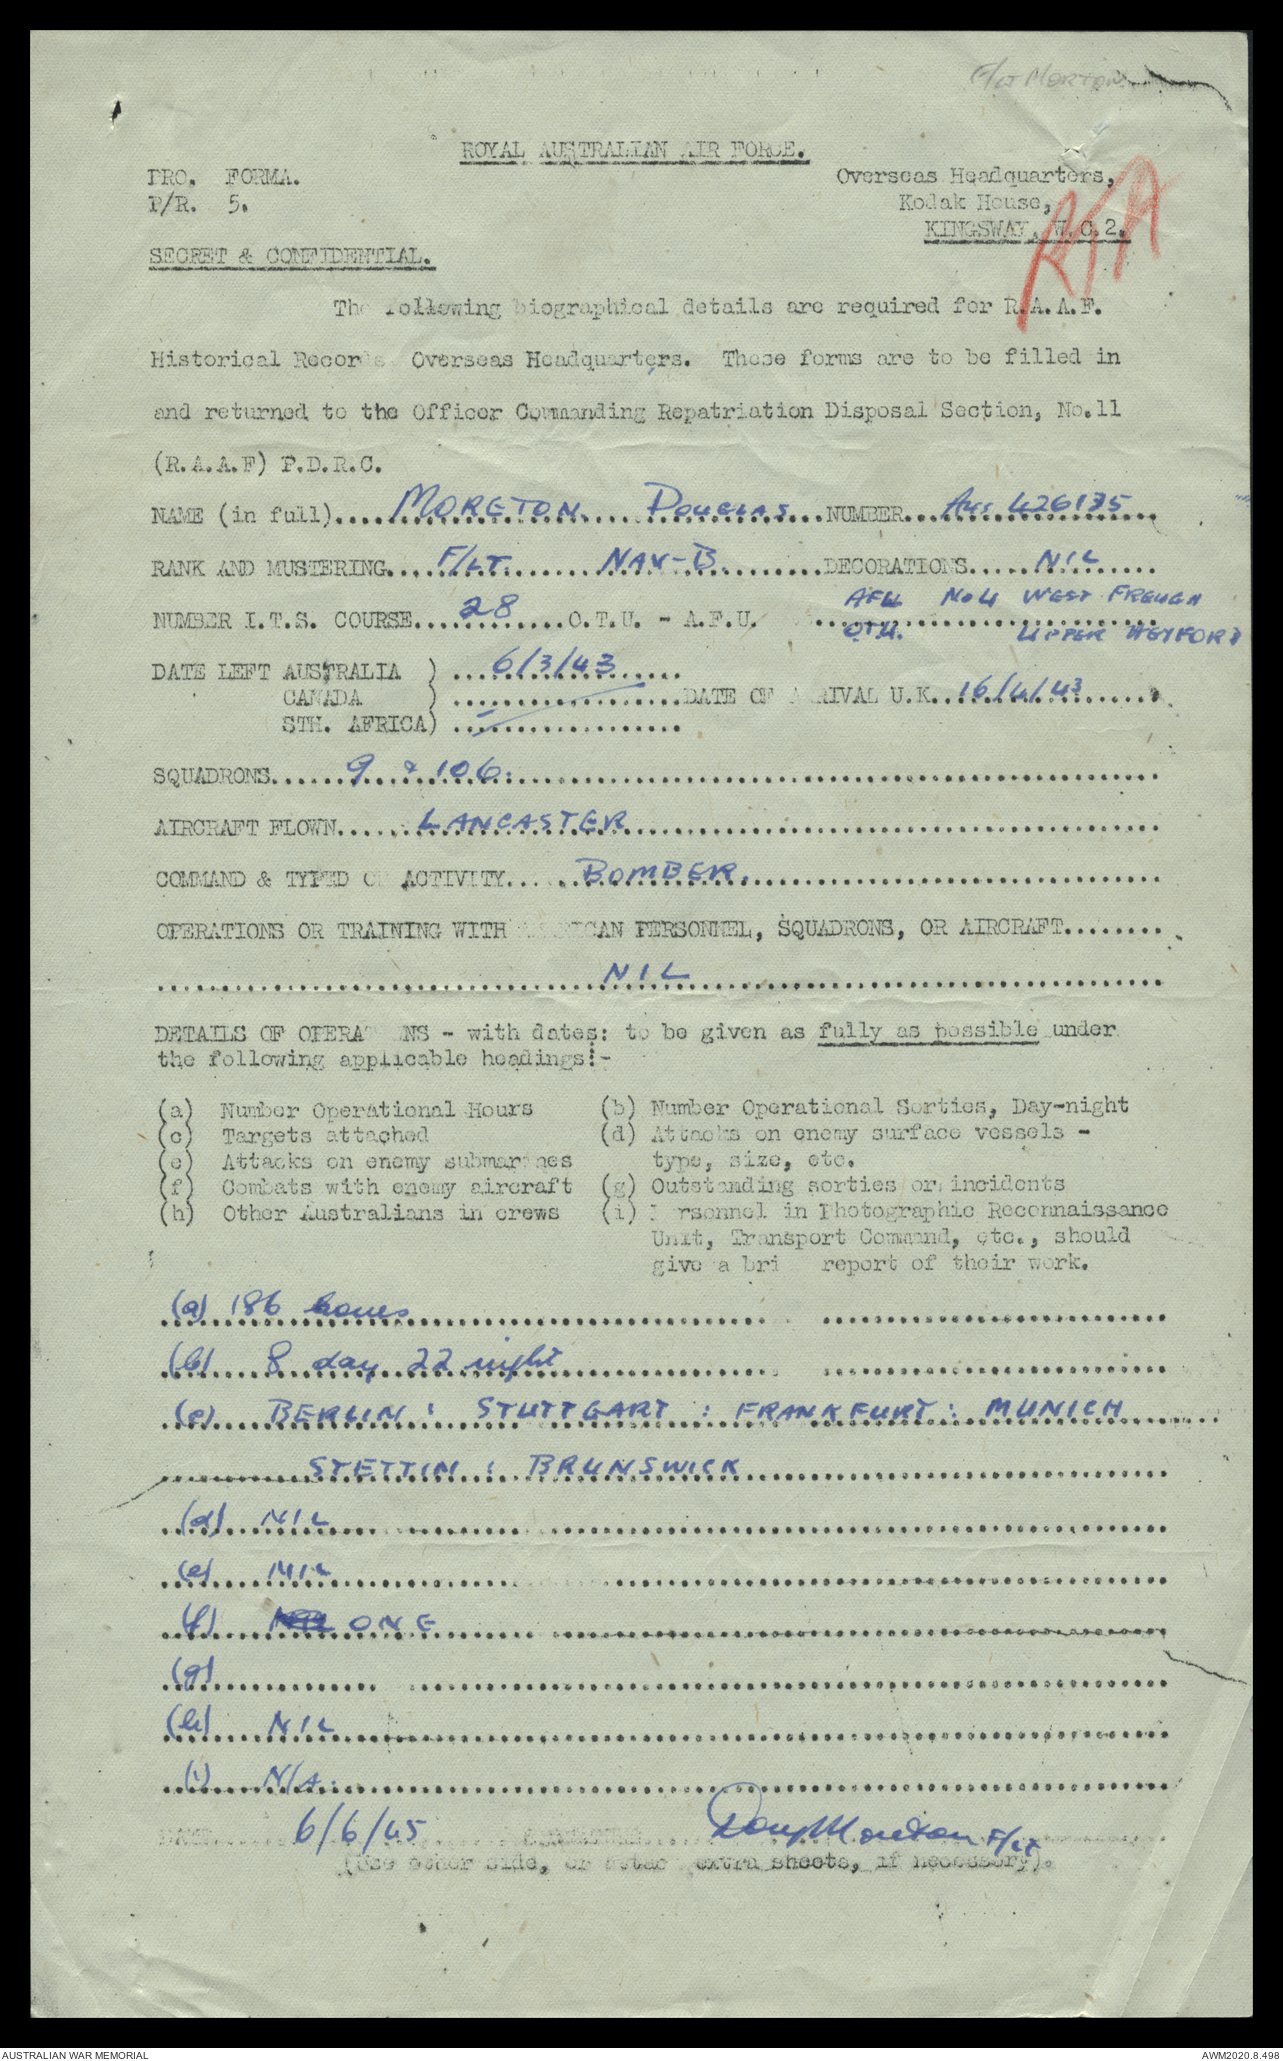 F/Lt MORTON
ROYAL AUSTRALIAN AIR FORCE.
PRO. FORMA.
P/R. 5.
Overseas Headquarters,
Kodak House,
KINGSWAY, W.C.2.
RTA
SECRET & CONFIDENTIAL.
The following biographical details are required for R.A.A.F.
Historical Records Overseas Headquarters. These forms are to be filled in
and returned to the Officer Commanding Repatriation Disposal Section, No.11
(R.A.A.F) P.D.R.C.
NAME (in full).... MORETON DOUGLAS ...NUMBER... Aus 426135
RANK AND MUSTERING... F/LT. NAV-B. ...DECORATIONS... NIL
NUMBER I.T.S. COURSE... 28 ...O.T.U. - A.F.U. AFU No4 WEST FREUGH
OTU. UPPER HEYFORD
DATE LEFT AUSTRALIA ) ... 6/3/43
CANADA ) ...DATE OF ARRIVAL U.K.. 16/4/43
STH. AFRICA) ...
SQUADRONS... 9 & 106.
AIRCRAFT FLOWN... LANCASTER
COMMAND & TYPED OF ACTIVITY... BOMBER.
OPERATIONS OR TRAINING WITH AMERICAN PERSONNEL, SQUADRONS, OR AIRCRAFT...
NIL
DETAILS OF OPERATIONS - with dates: to be given as fully as possible under
the following applicable headings:-
(a) Number Operational Hours (b) Number Operational Sorties, Day-night
(c) Targets attached (d) Attacks on enemy surface vessels -
(e) Attacks on enemy submarines type, size, etc.
(f) Combats with enemy aircraft (g) Outstanding sorties or incidents
(h) Other Australians in crews (i) Personnel in Photographic Reconnaissance
Unit, Transport Command, etc., should
give a brief report of their work.
(a) 186 hours
(b) 8 day 22 night
(c) BERLIN : STUTTGART : FRANKFURT : MUNICH
STETTIN : BRUNSWICK
(d) NIL
(e) NIL
(f) ONE
(g)
(h) NIL
(i) N/A.
DATE... 6/6/45 Doug Moreton F/Lt
(Use other side, or attach extra sheets, if necessary).
AUSTRALIAN WAR MEMORIAL
AWM2020.8.498